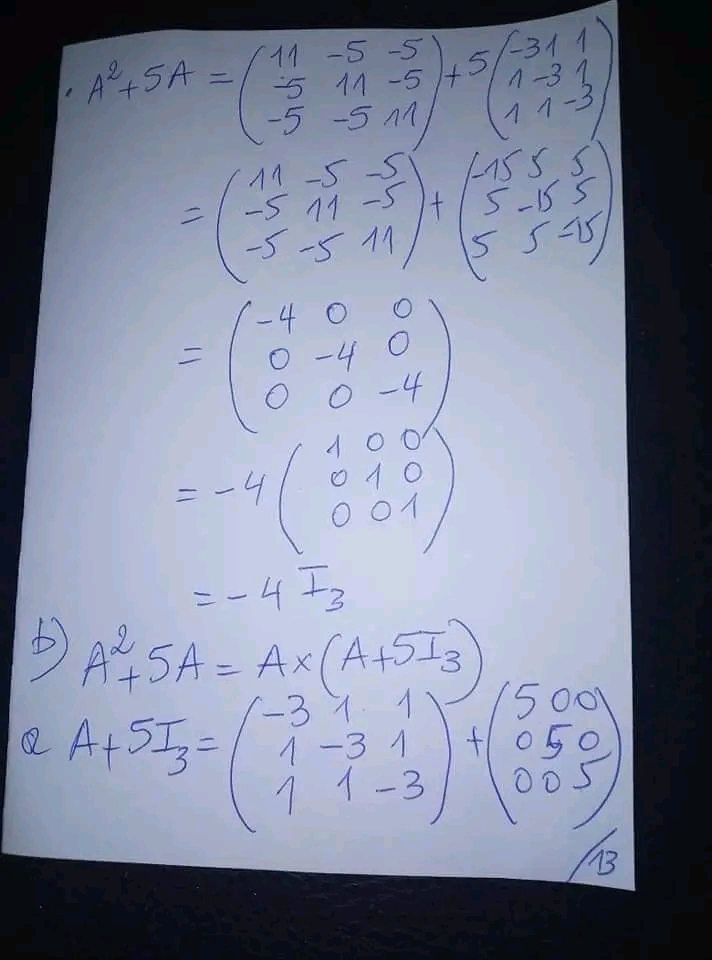 . A²+5A = (11 -5 -5
-5 11 -5
-5 -5 11) + 5 (-3 1 1
1 -3 1
1 1 -3)
= (11 -5 -5
-5 11 -5
-5 -5 11) + (-15 5 5
5 -15 5
5 5 -15)
= (-4 0 0
0 -4 0
0 0 -4)
= -4 (1 0 0
0 1 0
0 0 1)
= -4 I₃
b) A²+5A = A×(A+5I₃)
A+5I₃ = (-3 1 1
1 -3 1
1 1 -3) + (5 0 0
0 5 0
0 0 5)
/13